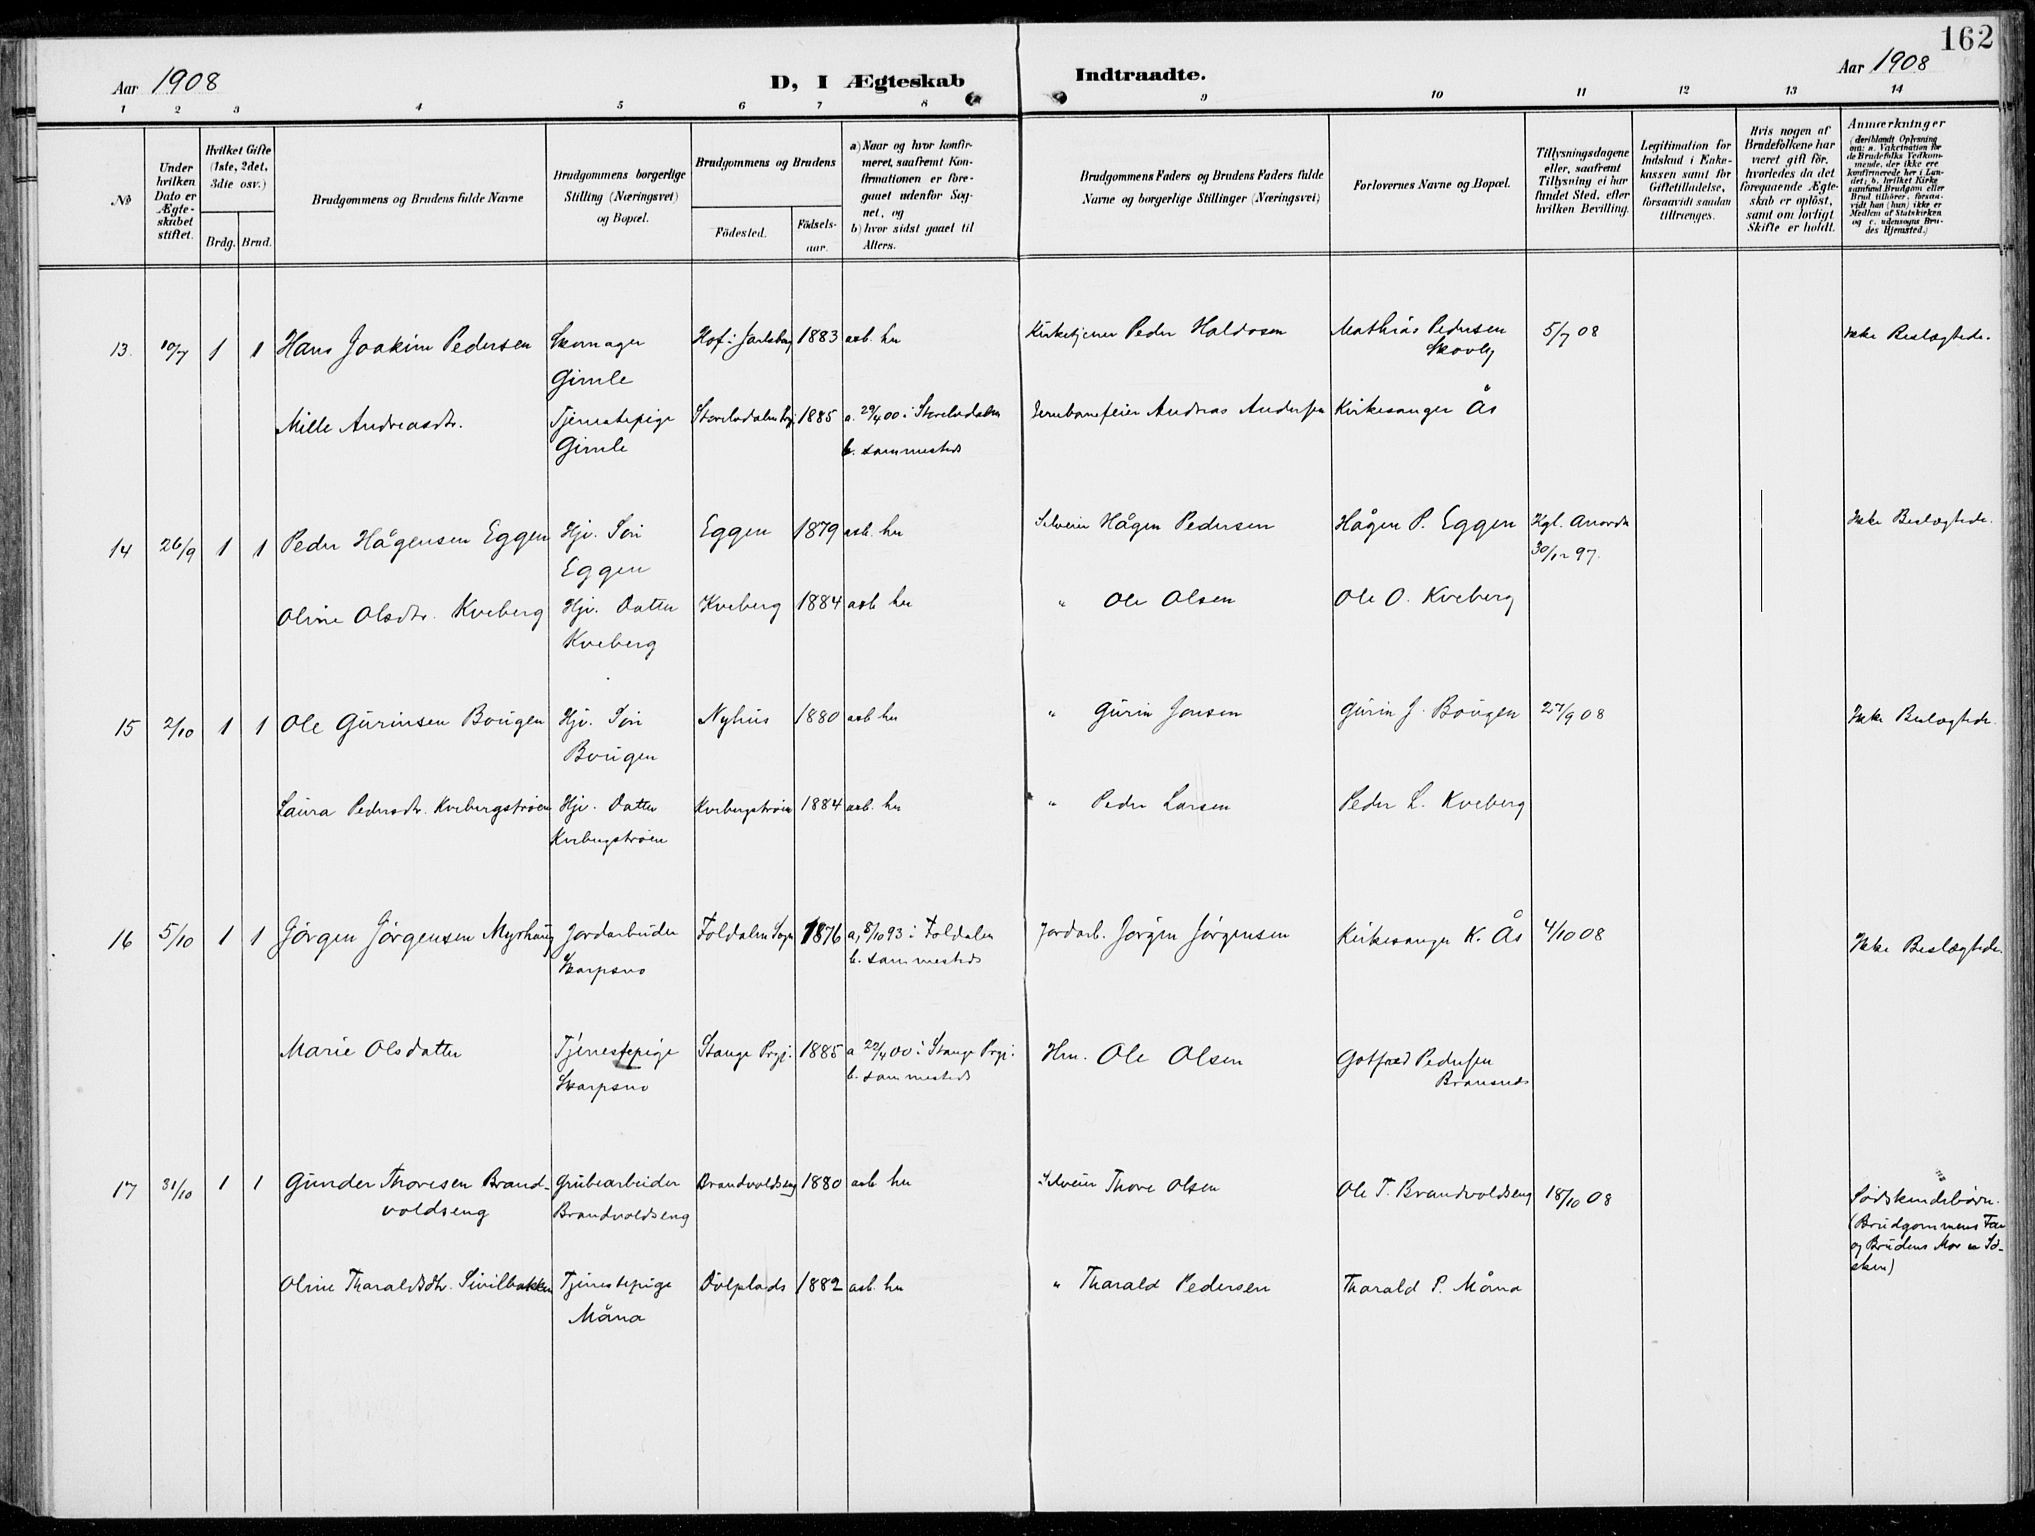 162
Aar 1908
D, I Ægteskab Indtraadte.
Aar 1908
1 2 3 4 5 6 7 8 9 10 11 12 13 14
No
Under hvilken Dato er Ægteskabet stiftet.
Hvilket Gifte (1ste, 2det, 3die osv.)
Brdg. Brud.
Brudgommens og Brudens fulde Navne
Brudgommens borgerlige Stilling (Næringsvei) og Bopæl.
Brudgommens og Brudens
Födested. Födsels-aar.
a) Naar og hvor konfirmeret, saafremt Konfirmationen er foregaaet udenfor Sognet, og
b) hvor sidst gaaet til Alters.
Brudgommens Faders og Brudens Faders fulde Navne og borgerlige Stillinger (Næringsvei)
Forlovernes Navne og Bopæl.
Tillysningsdagene eller, saafremt Tillysning ei har fundet Sted, efter hvilken Bevilling.
Legitimation for Indskud i Enkekassen samt for Giftetilladelse, forsaavidt saadan tiltrænges.
Hvis nogen af Brudefolkene har været gift för, hvorledes da det foregaaende Ægteskab er oplöst, samt om lovligt Skifte er holdt.
Anmærkninger (deriblandt Oplysning om: a. Vakcination for de Brudefolks Vedkommende, der ikke ere konfirmerede her i Landet; b. hvilket Kirkesamfund Brudgom eller Brud tilhörer, forsaavidt han (hun) ikke er Medlem af Statskirken og c. udensogns Brudes Hjemsted.)
13. 10/7 1 1 Hans Joakim Pedersen Skomager Hof i Jarlsberg 1883 asb. her Kirketjener Peder Haldosen Mathias Pedersen 5/7 08 Ikke Beslægtede.
Gimle Skovly
Mille Andreasdtr. Tjenestepige Storelvdalen Prgj. 1885 a. 29/4 00 i Storelvdalen Andreas Andersen Kirkesanger Ås
Gimle b. sammesteds
14 26/9 1 1 Peder Hågensen Eggen Hjv. Søn Eggen 1879 asb. her Selveier Hågen Pedersen Hågen P. Eggen Kgl. Anordn Ikke Beslægtede.
Eggen 30/12 97.
Oline Olsdtr. Kveberg Hjv. Datter Kveberg 1884 asb her " Ole Olsen Ole O. Kveberg
Kveberg
15 2/10 1 1 Ole Gurinsen Bougen Hjv. Søn Nyhus 1880 asb her " Gurin Jonsen Gurin J. Bougen 27/9 08 Ikke Beslægtede.
Bougen
Laura Pedersdtr. Kvebergstrøen Hjv. Datter Kvebergstrøen 1884 asb. her " Peder Larsen Peder L. Kveberg
Kvebergstrøen
16 5/10 1 1 Jörgen Jörgensen Myrhaug Jordarbeider Foldalen Sogn 1876 a, 8/10 93 i Foldalen Jordarb. Jörgen Jörgensen Kirkesanger K. Ås 4/10 08 Ikke Beslægtede.
Skarpsno b. sammesteds
Marie Olsdatter Tjenestepige Stange Prgj. 1885 a 22/4 00 i Stange Prgj. Hm. Ole Olsen Gotfred Pedersen
Skarpsno b. sammesteds
17 31/10 1 1 Gunder Thoresen Brand- Grubearbeider Brandvoldseng 1880 asb her Selveier Thore Olsen Ole T. Brandvoldseng 18/10 08 Södskendebörn.
voldseng Brandvoldseng (Brudgommens Far
og Brudens Mor er Sö-
sken)
Oline Tharaldsdtr. Sivilbakken Tjenestepige Dölplads 1882 asb. her " Tharald Pedersen Tharald P. Måna
Måna